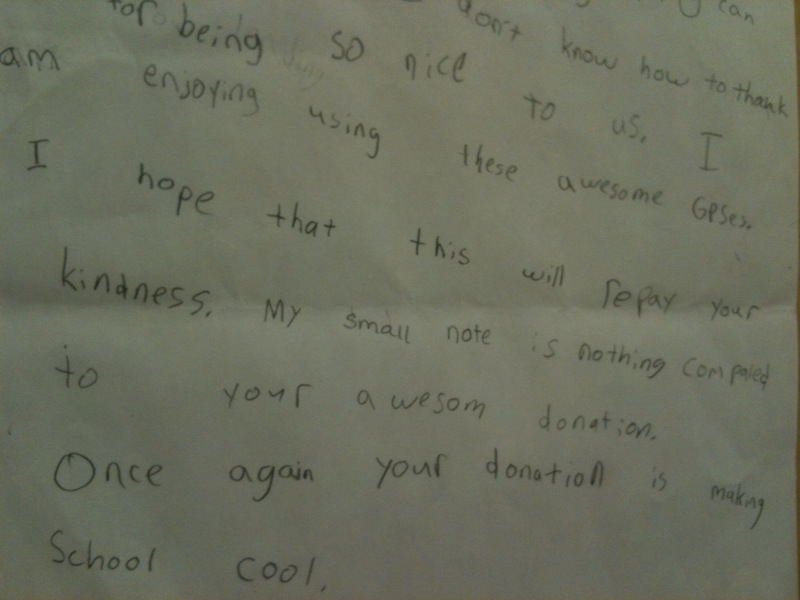 can
don't know how to thank
for being so nice to us. I
am enjoying using these awesome GPSes.
I hope that this will repay your
kindness. My small note is nothing compaled
to your awesom donation.
Once again your donation is making
School cool.